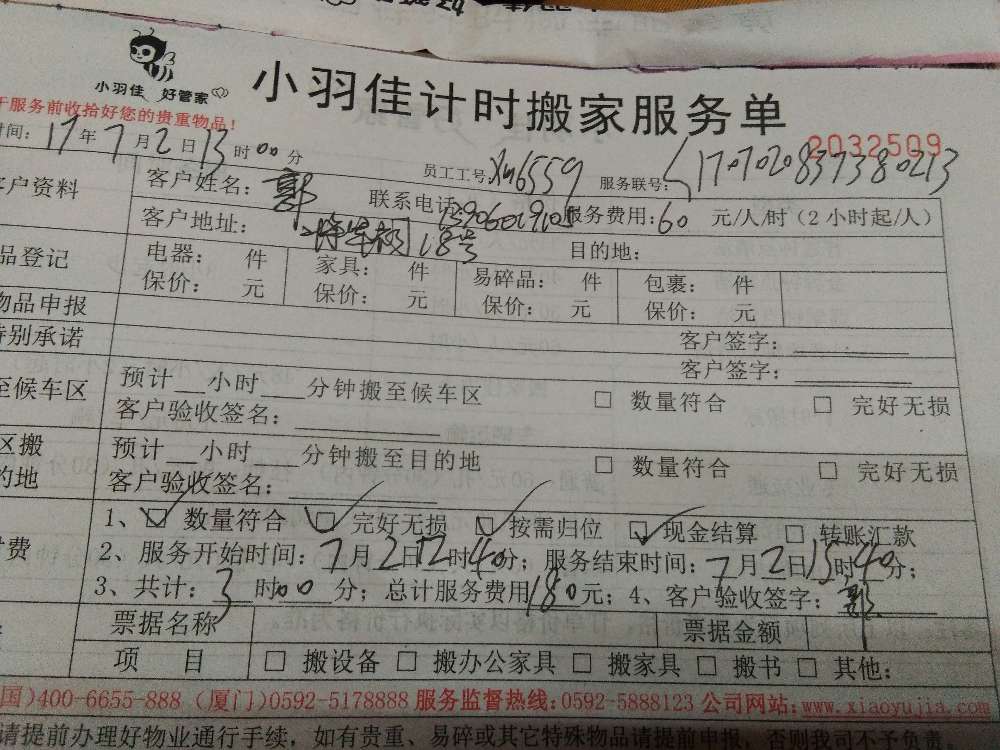 小羽佳 好管家
小羽佳计时搬家服务单
于服务前收拾好您的贵重物品!
2032509
时间: 17年7月2日13时00分
员工工号: xm6559 服务联号: 170702083738021​3
客户资料
客户姓名: 郭 联系电话: 服务费用: 60 元/人/时 (2小时起/人)
客户地址: 18号 目的地:
品登记
电器: 件 家具: 件 易碎品: 件 包裹: 件
保价: 元 保价: 元 保价: 元 保价: 元
物品申报 客户签字:
特别承诺 客户签字:
至候车区
预计 小时 分钟搬至候车区 □ 数量符合 □ 完好无损
客户验收签名:
区搬
的地
预计 小时 分钟搬至目的地 □ 数量符合 □ 完好无损
客户验收签名:
1、☑ 数量符合 ☑ 完好无损 ☑ 按需归位 ☑ 现金结算 □ 转账汇款
付费
2、服务开始时间: 7月2日12时40分; 服务结束时间: 7月2日15时40分;
3、共计: 3时00分; 总计服务费用180元; 4、客户验收签字: 郭
票据名称 票据金额
项 目 □ 搬设备 □ 搬办公家具 □ 搬家具 □ 搬书 □ 其他:
国)400-6655-888 (厦门)0592-5178888 服务监督热线:0592-5888123 公司网站:www.xiaoyujia.com
请提前办理好物业通行手续, 如有贵重、易碎或其它特殊物品请提前申报, 否则我司不予负责